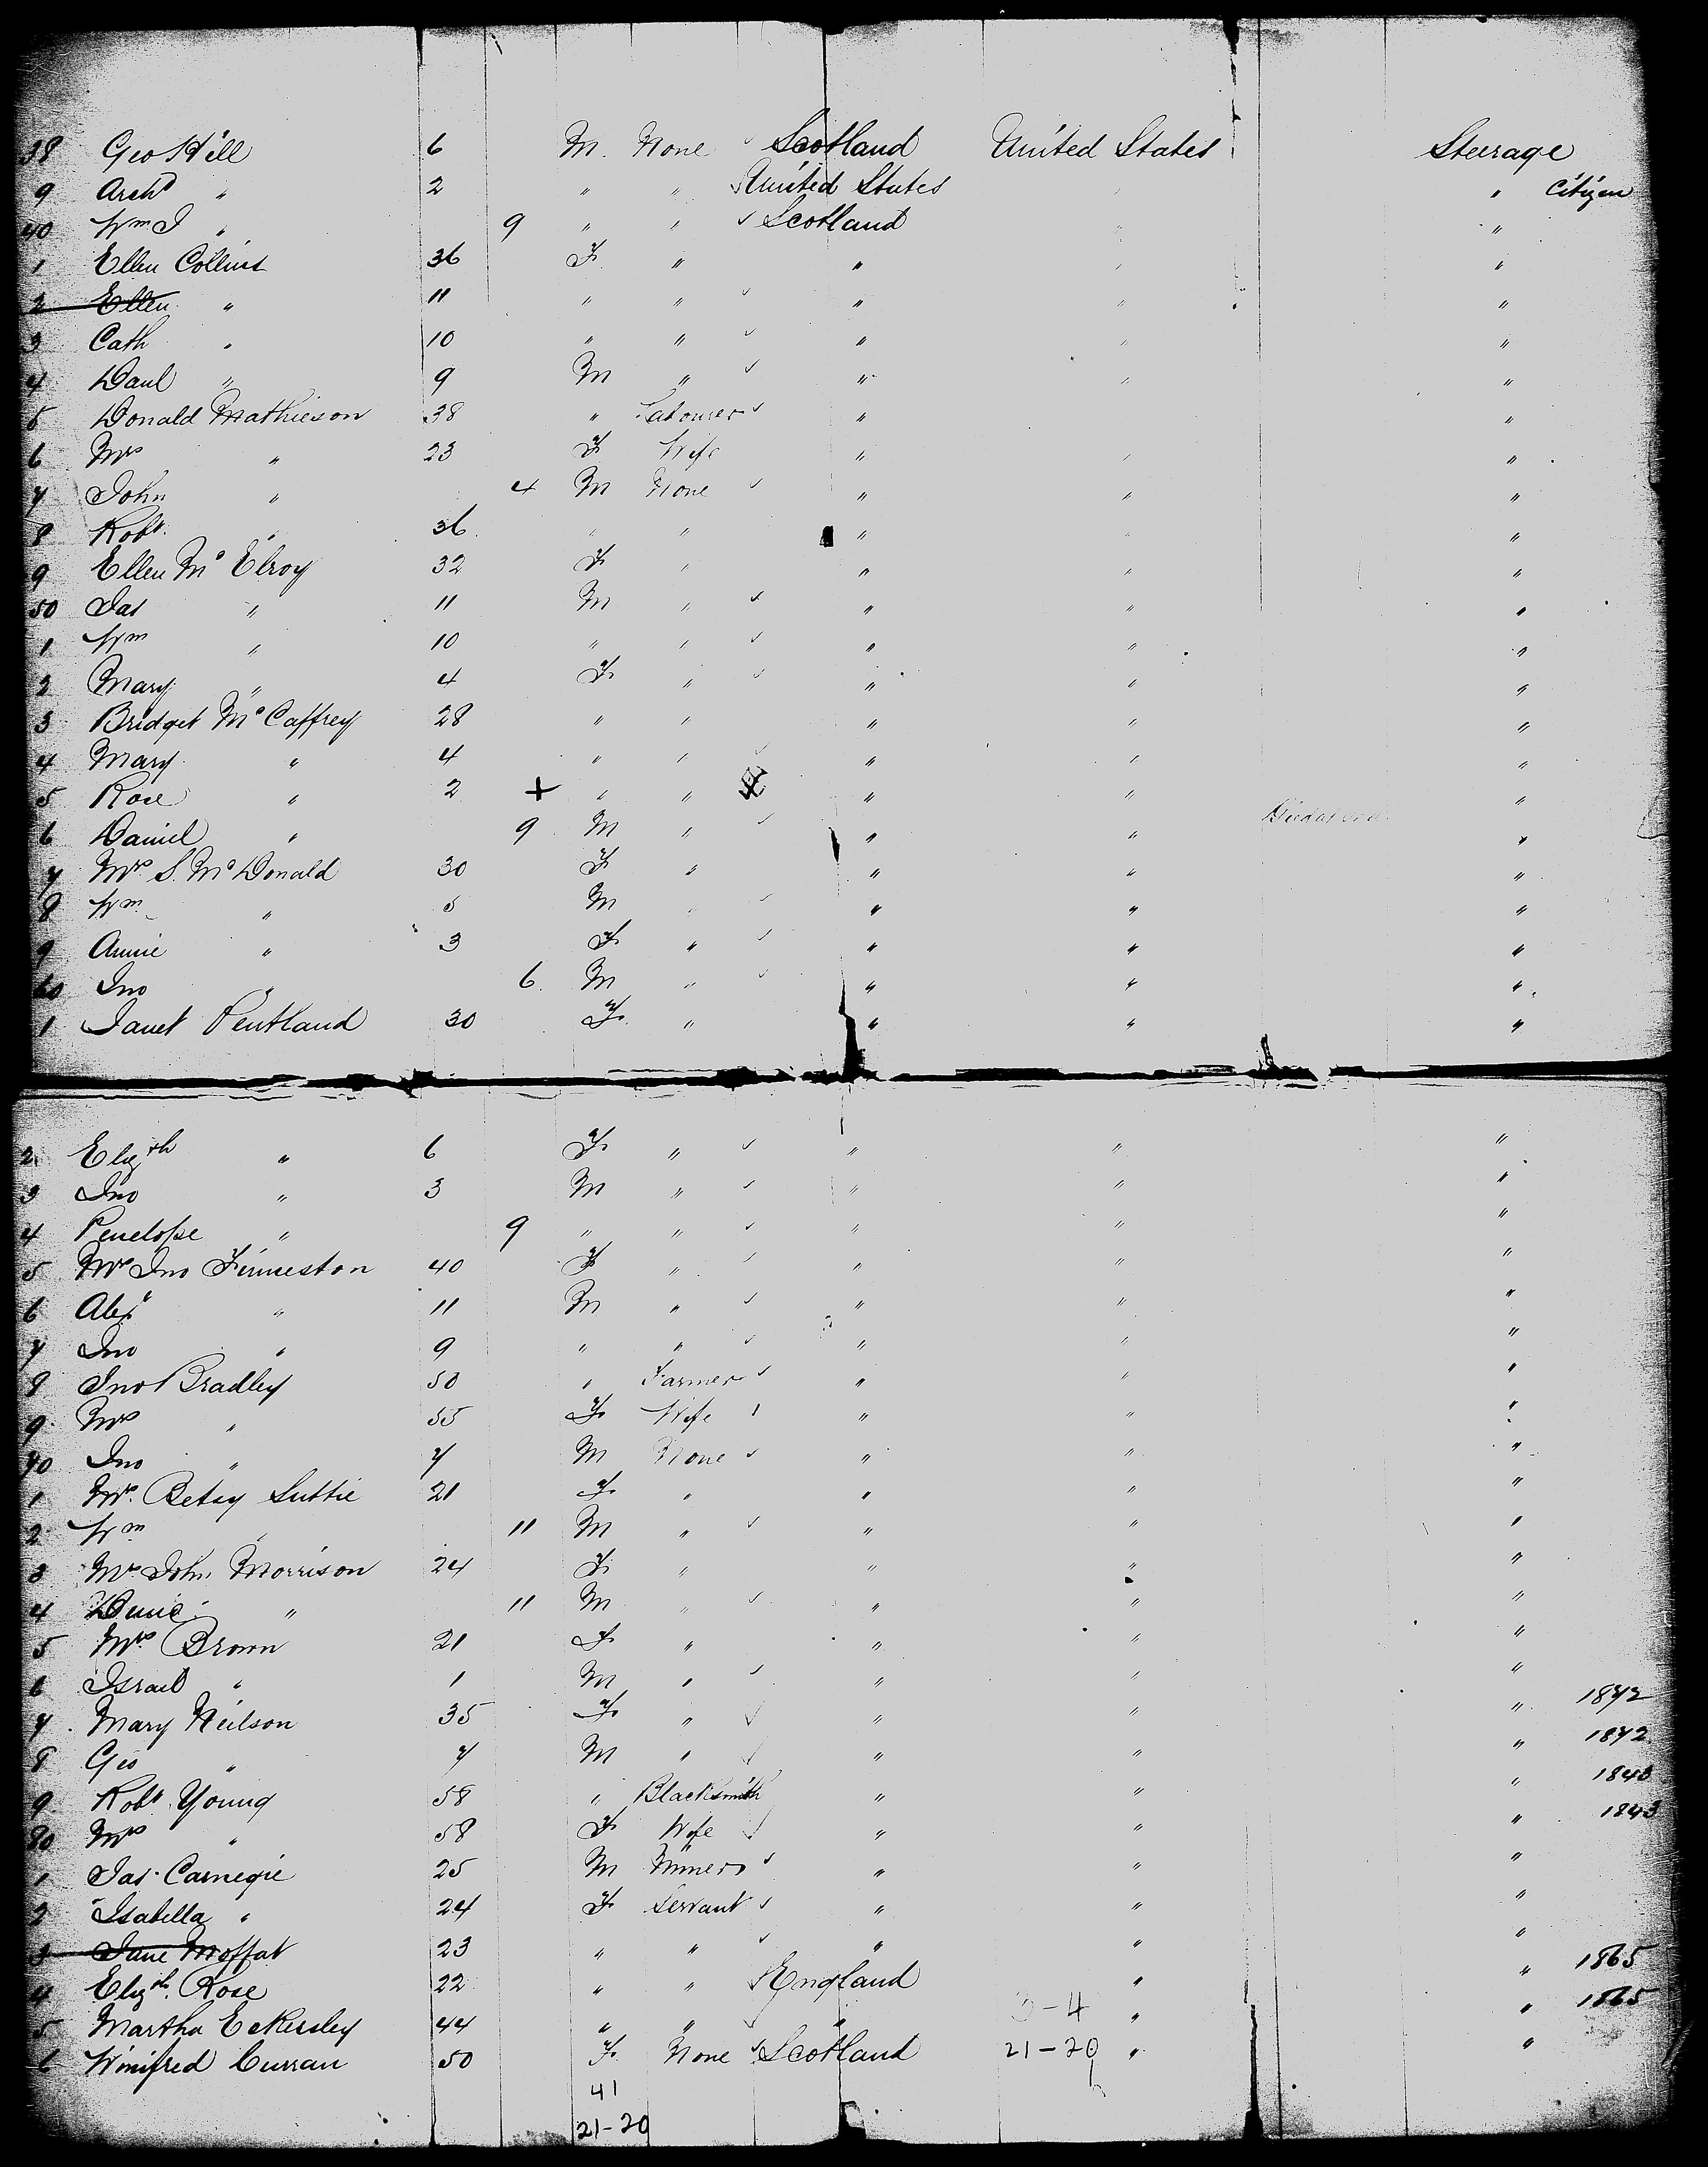 38 Geo Hill 6 M. None Scotland United States Steerage
9 Archd " 2 " " United States " " Citizen
40 Wm J " 9 " " Scotland " "
1 Ellen Collins 36 F. " " " "
2 Ellen " 11 " " " " "
3 Cath " 10 " " " " "
4 Danl " 9 M " " " "
5 Donald Mathieson 38 " Labourer " "
6 Mrs " 23 F Wife " " "
7 John " 4 M None " " "
8 Robt " 36 " " " " "
9 Ellen Mc Elroy 32 F " " " "
50 Jas " 11 M " " " "
1 Wm " 10 " " " " "
2 Mary " 4 F " " " "
3 Bridget Mc Caffrey 28 " " " " "
4 Mary " 4 " " " " "
5 Rose " 2 + " " " " "
6 Daniel " 9 M " " " "
7 Mrs S. Mc Donald 30 F " " " "
8 Wm " 5 M " " " "
9 Annie " 3 F " " " "
60 Jno " 6 M " " " "
1 Janet Pentland 30 F. " " " "
2 Elizth " 6 F " " " "
3 Jno " 3 M " " " "
4 Penelope " 9 " " " " "
5 Mrs Jno Finneston 40 F " " " "
6 Alexr " 11 M " " " "
7 Jno " 9 " " " " "
8 Jno Bradley 50 " Farmer " " "
9 Mrs " 55 F Wife " " "
70 Jno " 7 M None " " "
1 Mrs. Betsy Suttie 21 F " " " "
2 Wm " 11 M " " " "
3 Mrs John Morrison 24 F " " " "
4 " 11 M " " " "
5 Mrs Brown 21 F " " " "
6 Israel " 1 M " " " "
7 Mary Neilson 35 F " " " " 1872
8 Geo " 7 M " " " " 1872
9 Robt Young 58 " Blacksmith " " " 1843
80 Mrs " 58 F Wife " " " 1843
1 Jas. Carnegie 25 M Miner " " "
2 Isabella " 24 F Servant " " "
3 Jane Moffat 23 " " " " "
4 Elizth Rose 22 " " England " " 1865
5 Martha Eckersley 44 " " " 3-4 " " 1865
6 Winifred Curran 50 F. None Scotland 21-20 " "
41
21-20